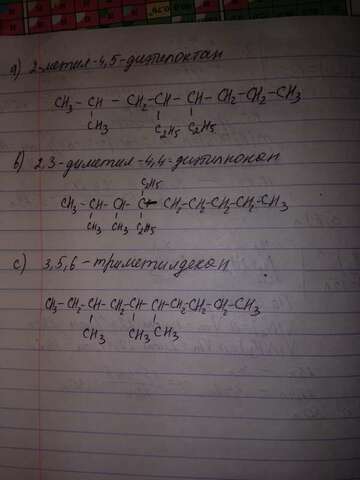 a) 2-метил-4,5-диэтилоктан
CH3 - CH - CH2-CH - CH - CH2-CH2-CH3
CH3 C2H5 C2H5
b) 2,3-диметил-4,4-диэтилнонан
C2H5
CH3-CH-CH-C-CH2-CH2-CH2-CH2-CH3
CH3 CH3 C2H5
c) 3,5,6-триметилдекан
CH3-CH2-CH-CH2-CH-CH-CH2-CH2-CH2-CH3
CH3 CH3 CH3